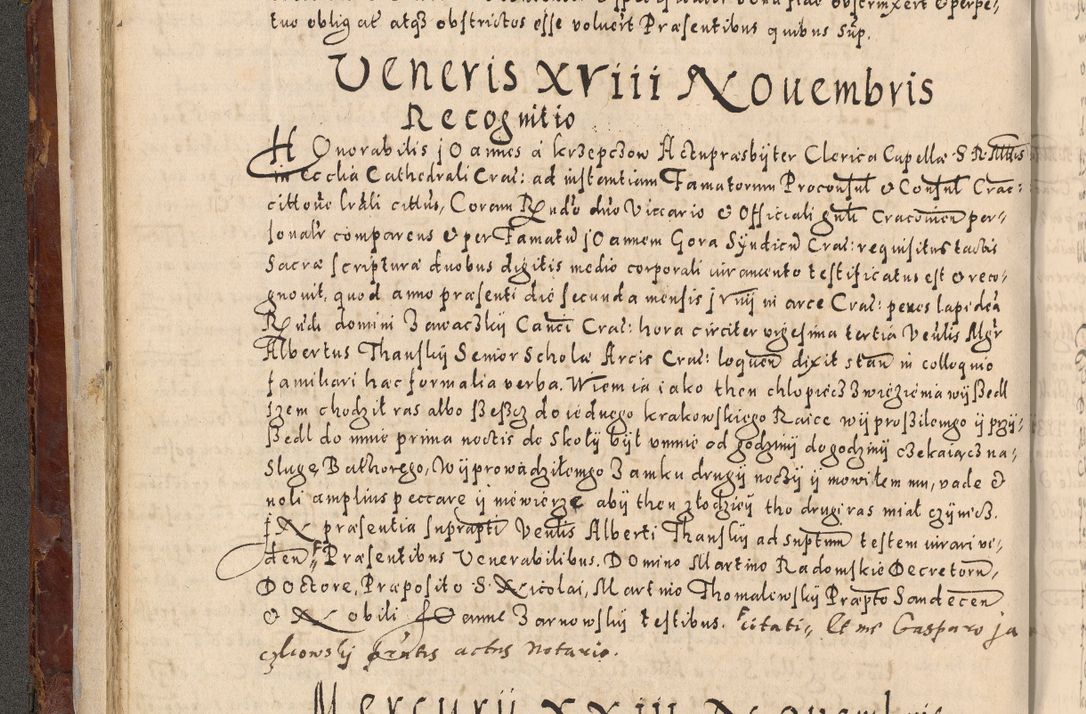 tuo oblig at atq3 obstrictos esse voluert Præsentibus quibus sup.
Veneris XViii Nouembris
Recognitio
HOnorabilis jOannes à krzepczow Actu præsbÿter Clerica Capellæ S R
in Ecclia Cathedrali Cra&: ad instantiam Famatorum Proconsul & Consul Crac:
Coram Rndo duo Viccario & Officiali gnli Cracouien per-
sonalr comparens & per Famatu jOannem Gora Sÿndicu Cra&: requisitus tactis
Sacræ scripturæ duobus digitis medio corporali iuramento testificatus est & reco-
gnouit, quod anno præsenti die secunda mensis in arce Cra&: penes lapideā
Rndi domini Zawaczkÿ Canci Cra&: hora circiter vigesima tertia Venlis Mgr
Albertus Thanskÿ Senior Scholæ Arcis Cra&: loquen dixit stan in colloquio
familiari hæc formalia verba. Wiem ia iako then chlopiecz zwiezienia wÿßedl
szem chodzil ras albo do iednego krakowskiego Raice wÿproßilemgo ÿ przÿ-
ßedl do mnie prima noctis do skolÿ bÿl vmnie od godzinÿ dogodzinÿ czekaiącz na-
Slugę Bathorego, Wÿprowadzilemgo Zamku drugÿ noczÿ ÿ mowilem mu, vade &
noli amplius peccare ÿ niewierzę abÿ then zlodzieÿ tho drugi ras mial czÿnicz.
IN præsentia suprapti Venlis Alberti Thanskÿ ad suptum testem iurari vi-
den Præsentibus Venerabilibus. Domino Martino Radomskio Decretorū,
DOctore, Præposito S Nicolai, Martino Thomalewskÿ Præpto Sandecen
& Nobili Zarnowskÿ testibus. citati, Et me Gasparo Ja
czkowskÿ pntis actus notario.